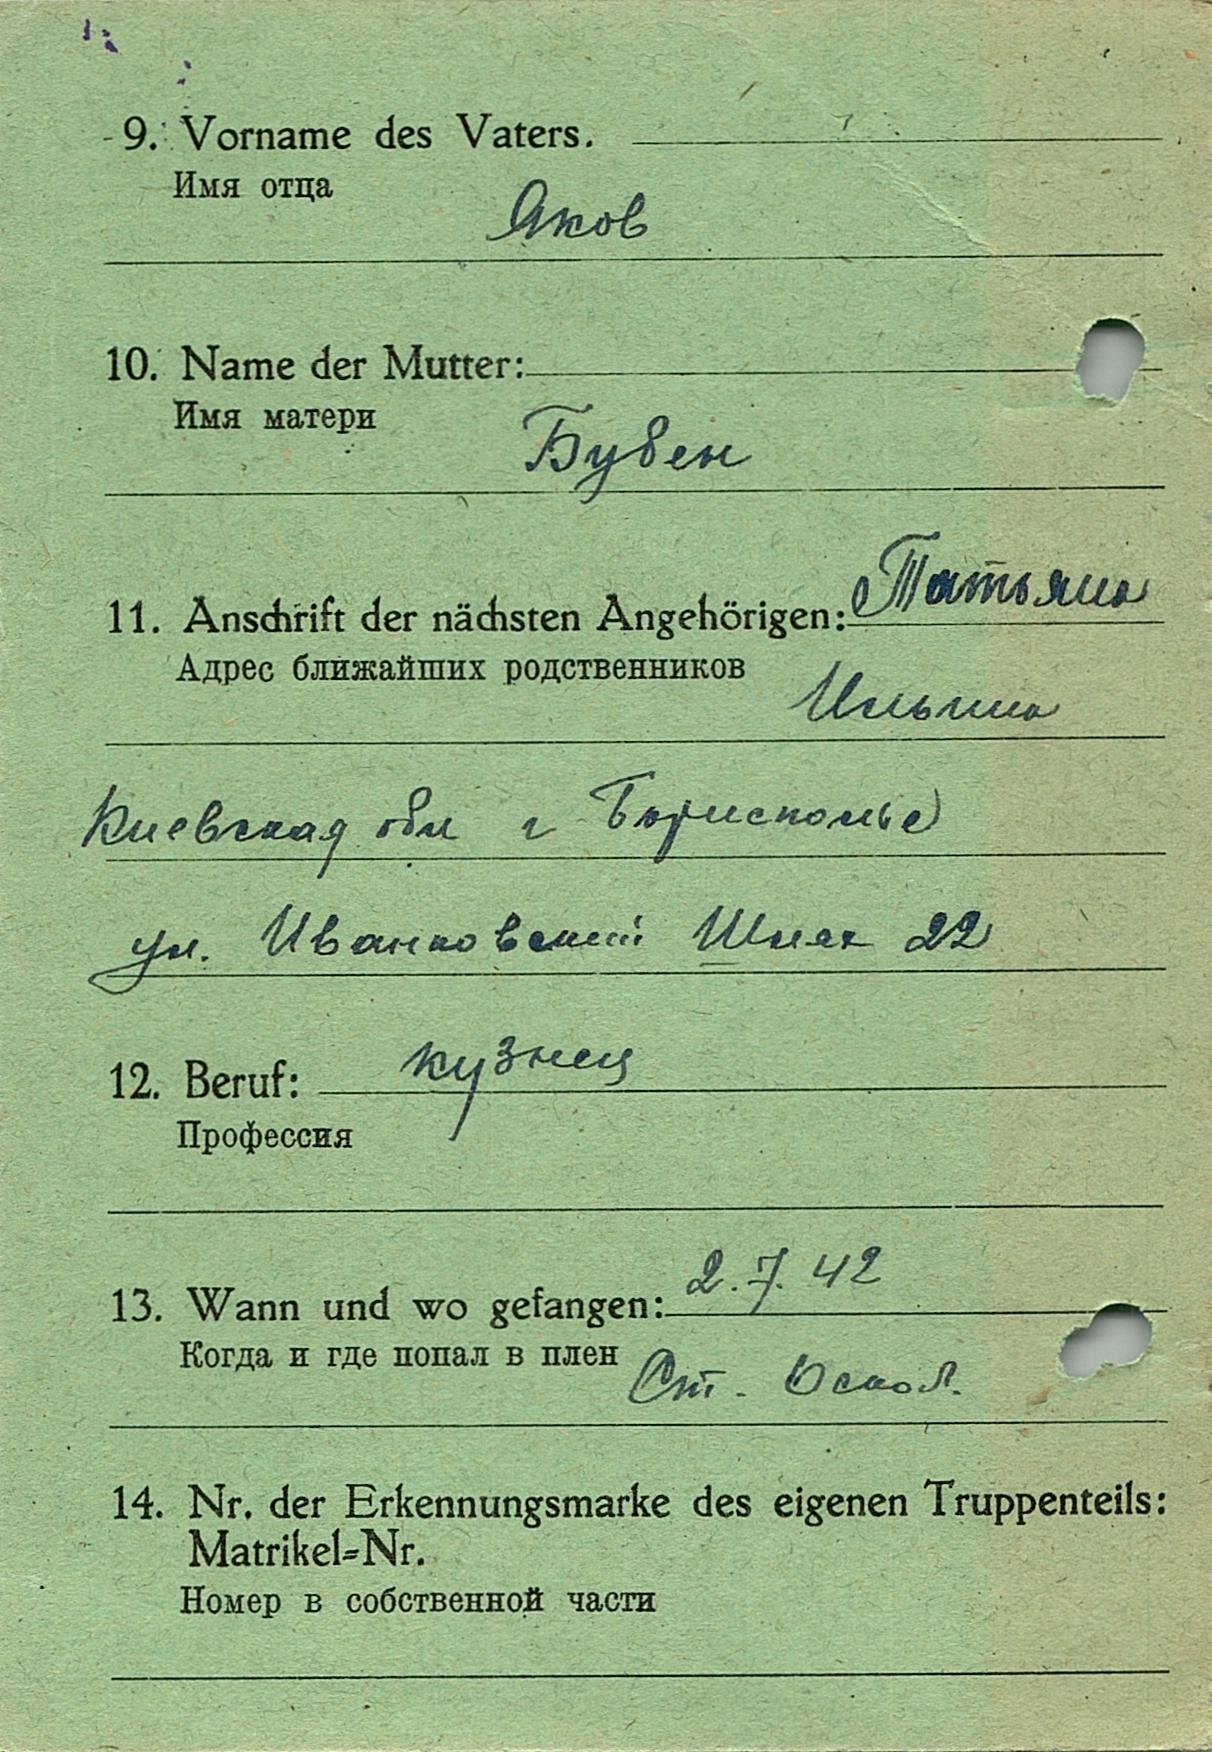 9. Vorname des Vaters.
Имя отца
Яков
10. Name der Mutter:
Имя матери
Бубен
11. Anschrift der nächsten Angehörigen: Татьяна
Адрес ближайших родственников
Ильина
Киевская обл г Борисполье
ул. Иванковский Шлях 22
12. Beruf: кузнец
Профессия
13. Wann und wo gefangen: 2.7.42
Когда и где попал в плен
Ст. Оскол.
14. Nr. der Erkennungsmarke des eigenen Truppenteils:
Matrikel=Nr.
Номер в собственной части